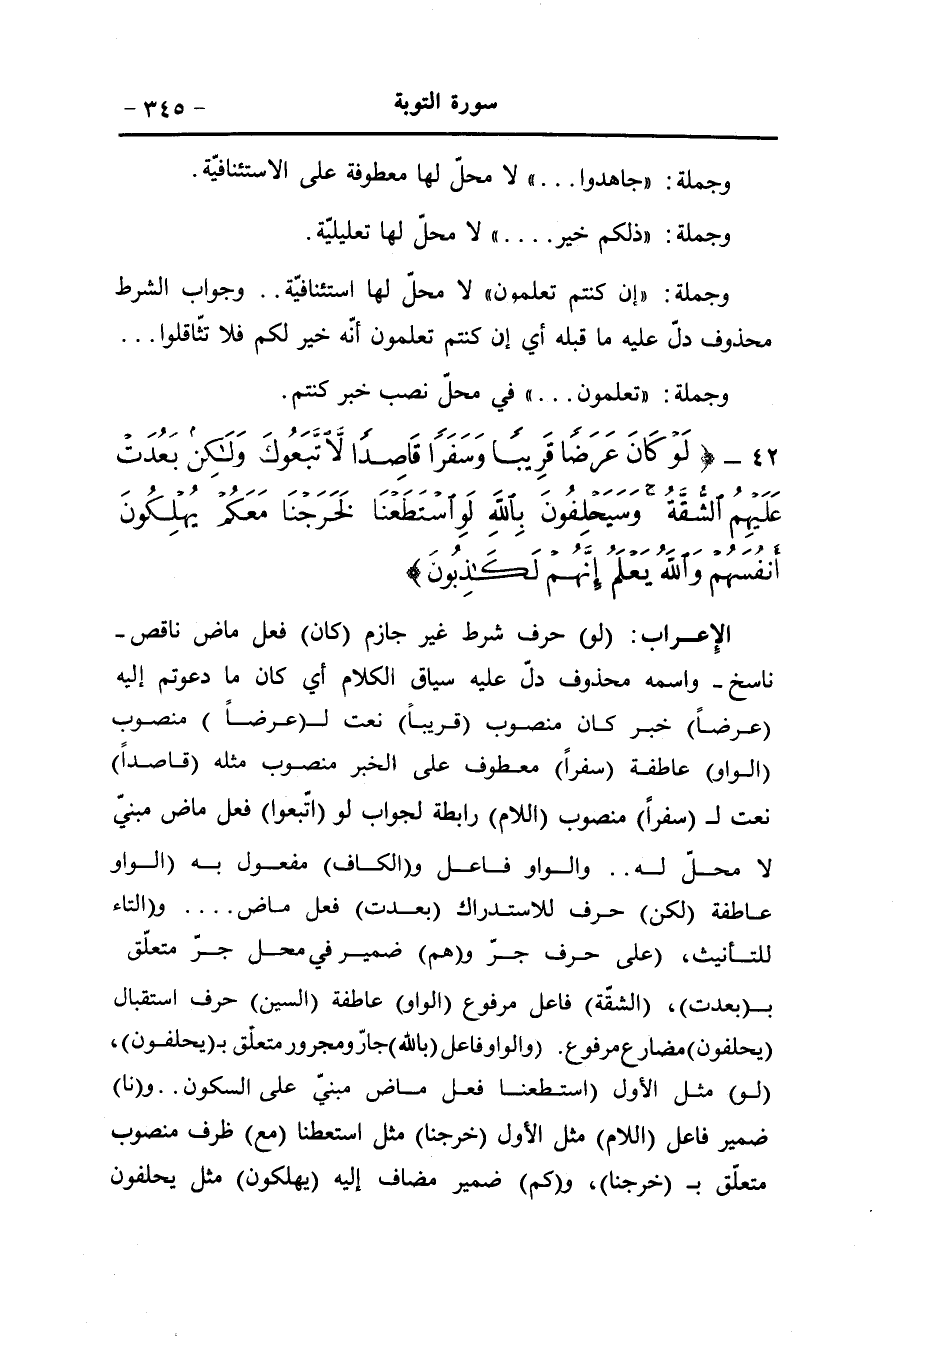 سورة التوبة - ٣٤٥ -
وجملة: «جاهدوا...» لا محلّ لها معطوفة على الاستئنافيّة.
وجملة: «ذلكم خير....» لا محلّ لها تعليليّة.
وجملة: «إن كنتم تعلمون» لا محلّ لها استئنافيّة.. وجواب الشرط
محذوف دلّ عليه ما قبله أي إن كنتم تعلمون أنّه خير لكم فلا تثّاقلوا...
وجملة: «تعلمون...» في محلّ نصب خبر كنتم.
٤٢ - ﴿لَوْ كَانَ عَرَضًا قَرِيبًا وَسَفَرًا قَاصِدًا لَّاتَّبَعُوكَ وَلَٰكِنۢ بَعُدَتْ
عَلَيْهِمُ ٱلشُّقَّةُ ۚ وَسَيَحْلِفُونَ بِٱللَّهِ لَوِ ٱسْتَطَعْنَا لَخَرَجْنَا مَعَكُمْ يُهْلِكُونَ
أَنفُسَهُمْ وَٱللَّهُ يَعْلَمُ إِنَّهُمْ لَكَٰذِبُونَ﴾
الإعراب: (لو) حرف شرط غير جازم (كان) فعل ماض ناقص -
ناسخ - واسمه محذوف دلّ عليه سياق الكلام أي كان ما دعوتم إليه
(عرضاً) خبر كان منصوب (قريباً) نعت لـ(عرضاً ) منصوب
(الواو) عاطفة (سفراً) معطوف على الخبر منصوب مثله (قاصداً)
نعت لـ (سفراً) منصوب (اللام) رابطة لجواب لو (اتّبعوا) فعل ماض مبنيّ
لا محلّ له.. والواو فاعل و(الكاف) مفعول به (الواو
عاطفة (لكن) حرف للاستدراك (بعدت) فعل ماض.... و(التاء
للتأنيث، (على حرف جرّ و(هم) ضمير في محل جرّ متعلّق
بـ(بعدت)، (الشقّة) فاعل مرفوع (الواو) عاطفة (السين) حرف استقبال
(يحلفون) مضارع مرفوع. (والواو فاعل (بالله) جارّ ومجرور متعلّق بـ(يحلفون)،
(لو) مثل الأول (استطعنا فعل ماض مبنيّ على السكون.. و(نا)
ضمير فاعل (اللام) مثل الأول (خرجنا) مثل استعطنا (مع) ظرف منصوب
متعلّق بـ (خرجنا)، و(كم) ضمير مضاف إليه (يهلكون) مثل يحلفون